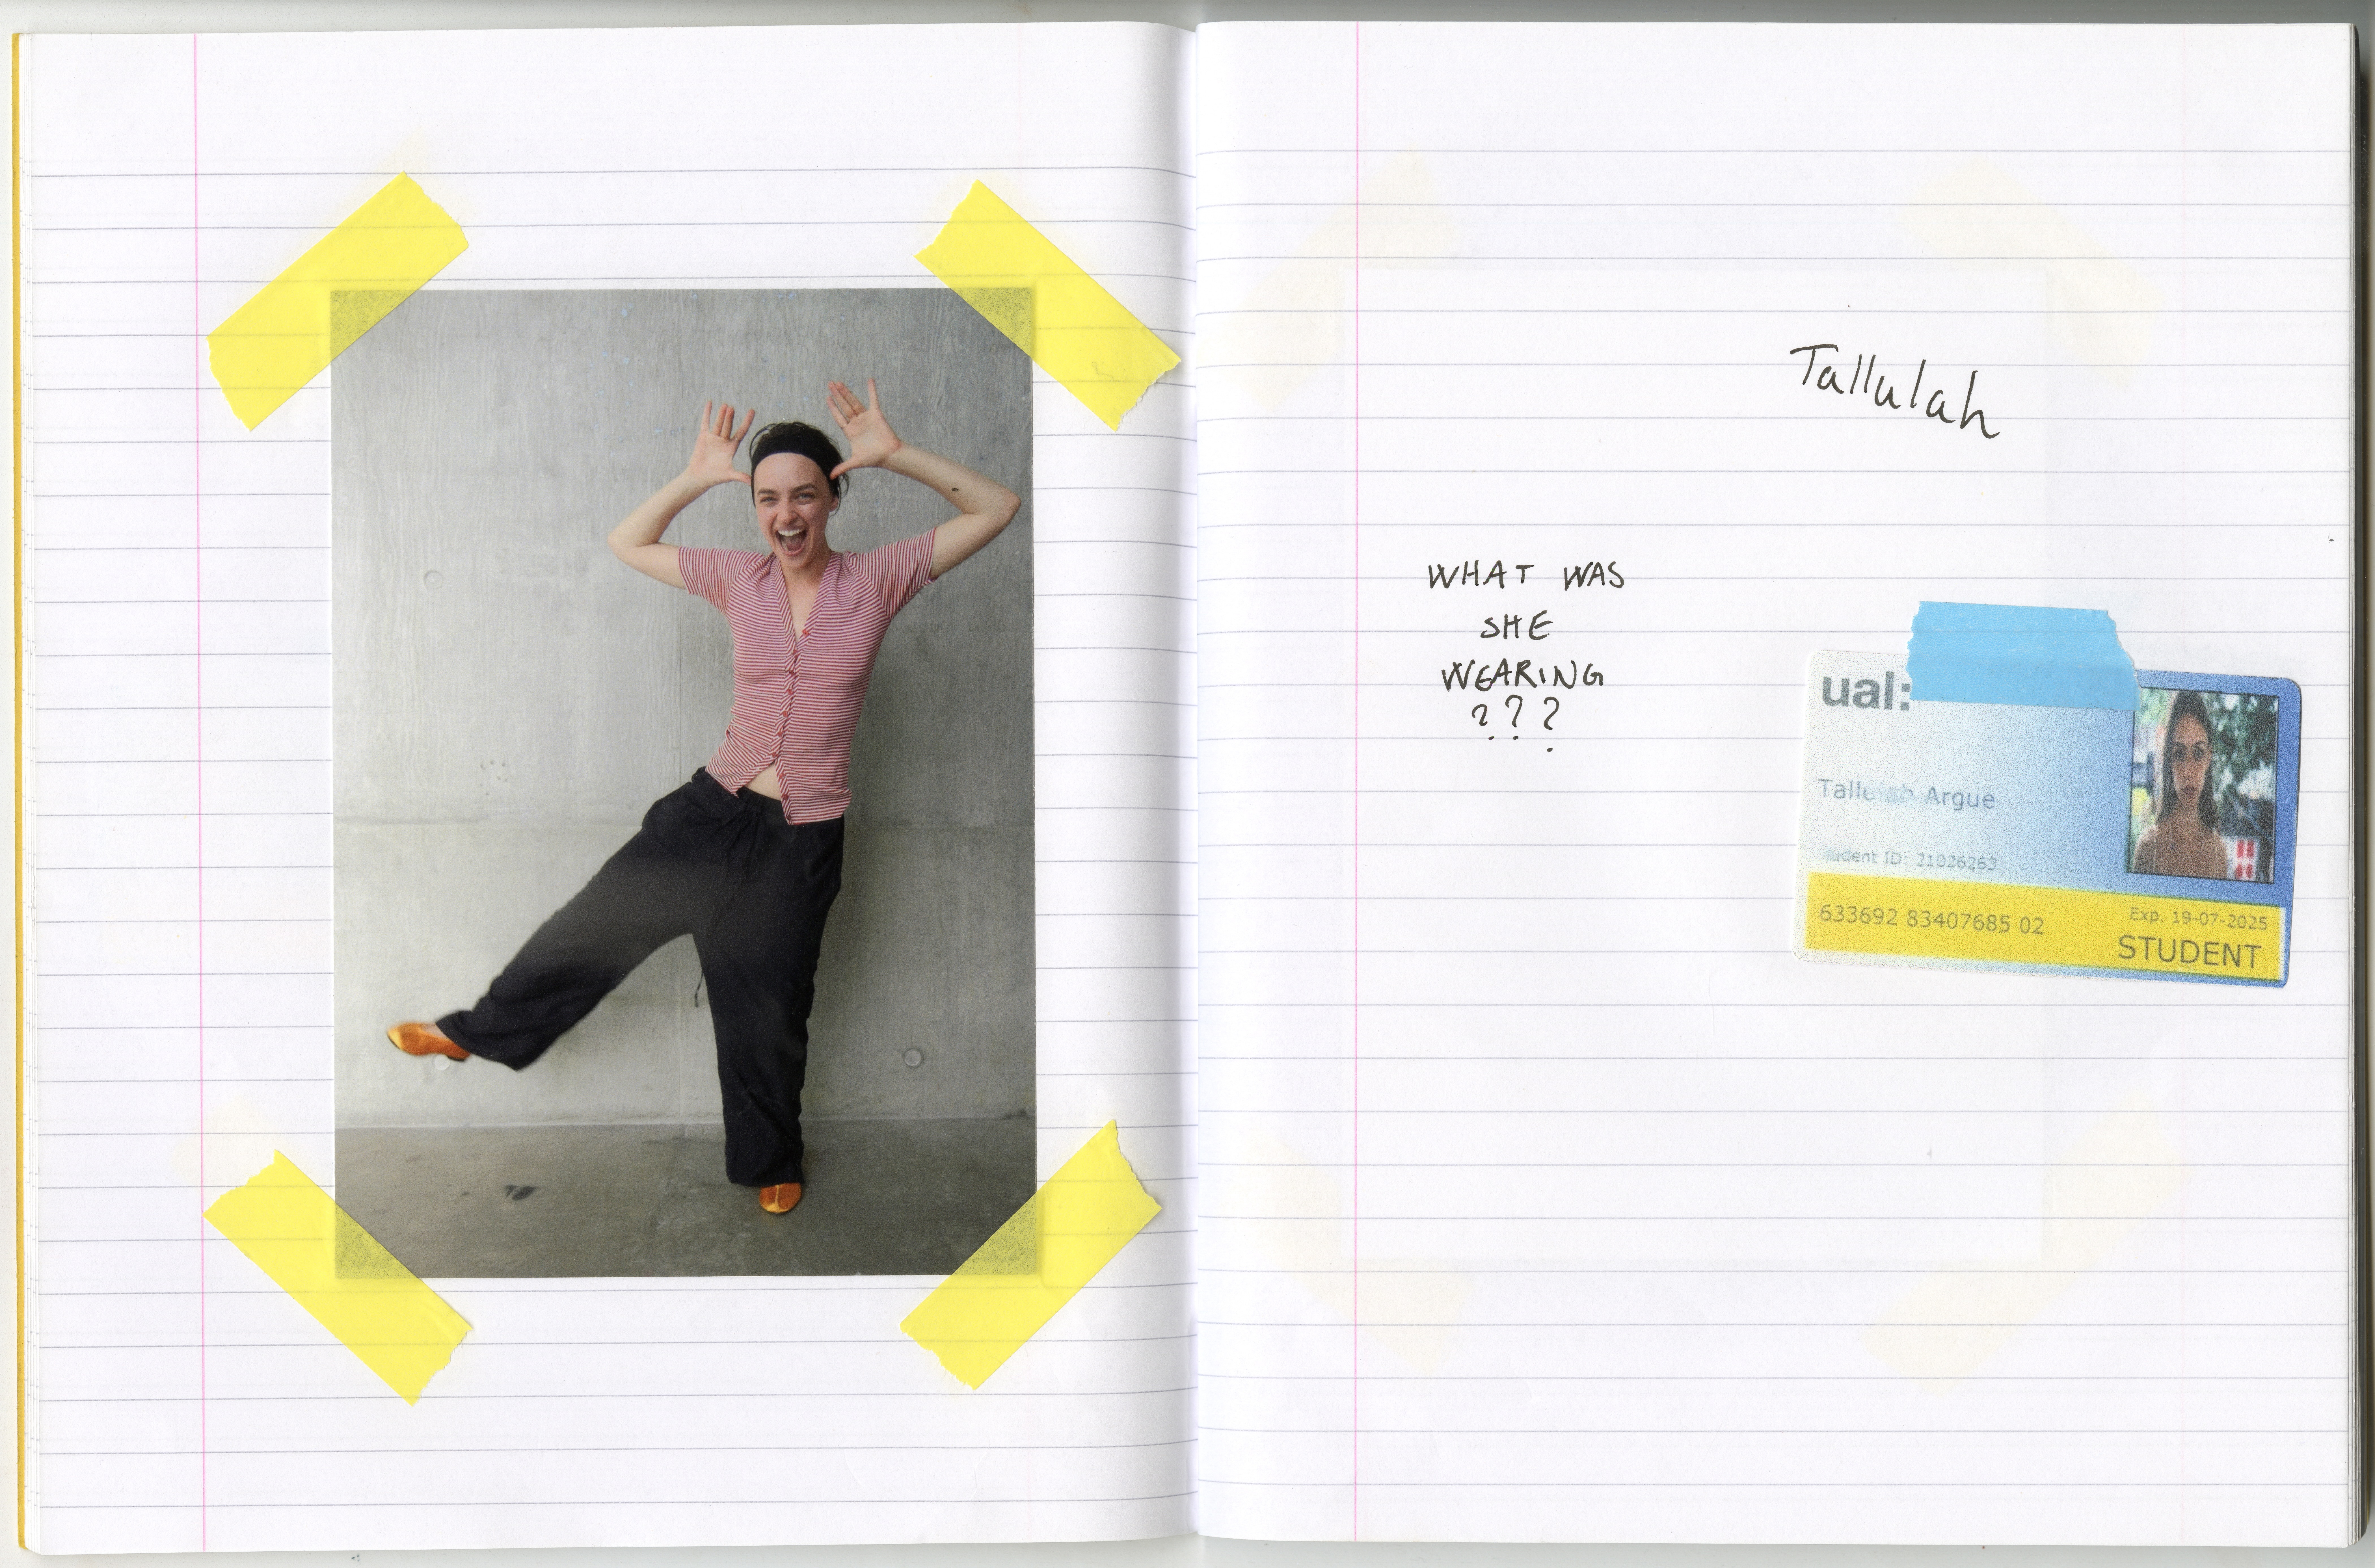 Tallulah
WHAT WAS
SHE
WEARING
???
ual:
Argue
ID: 21026263
633692 83407685 02
Exp. 19-07-2025
STUDENT